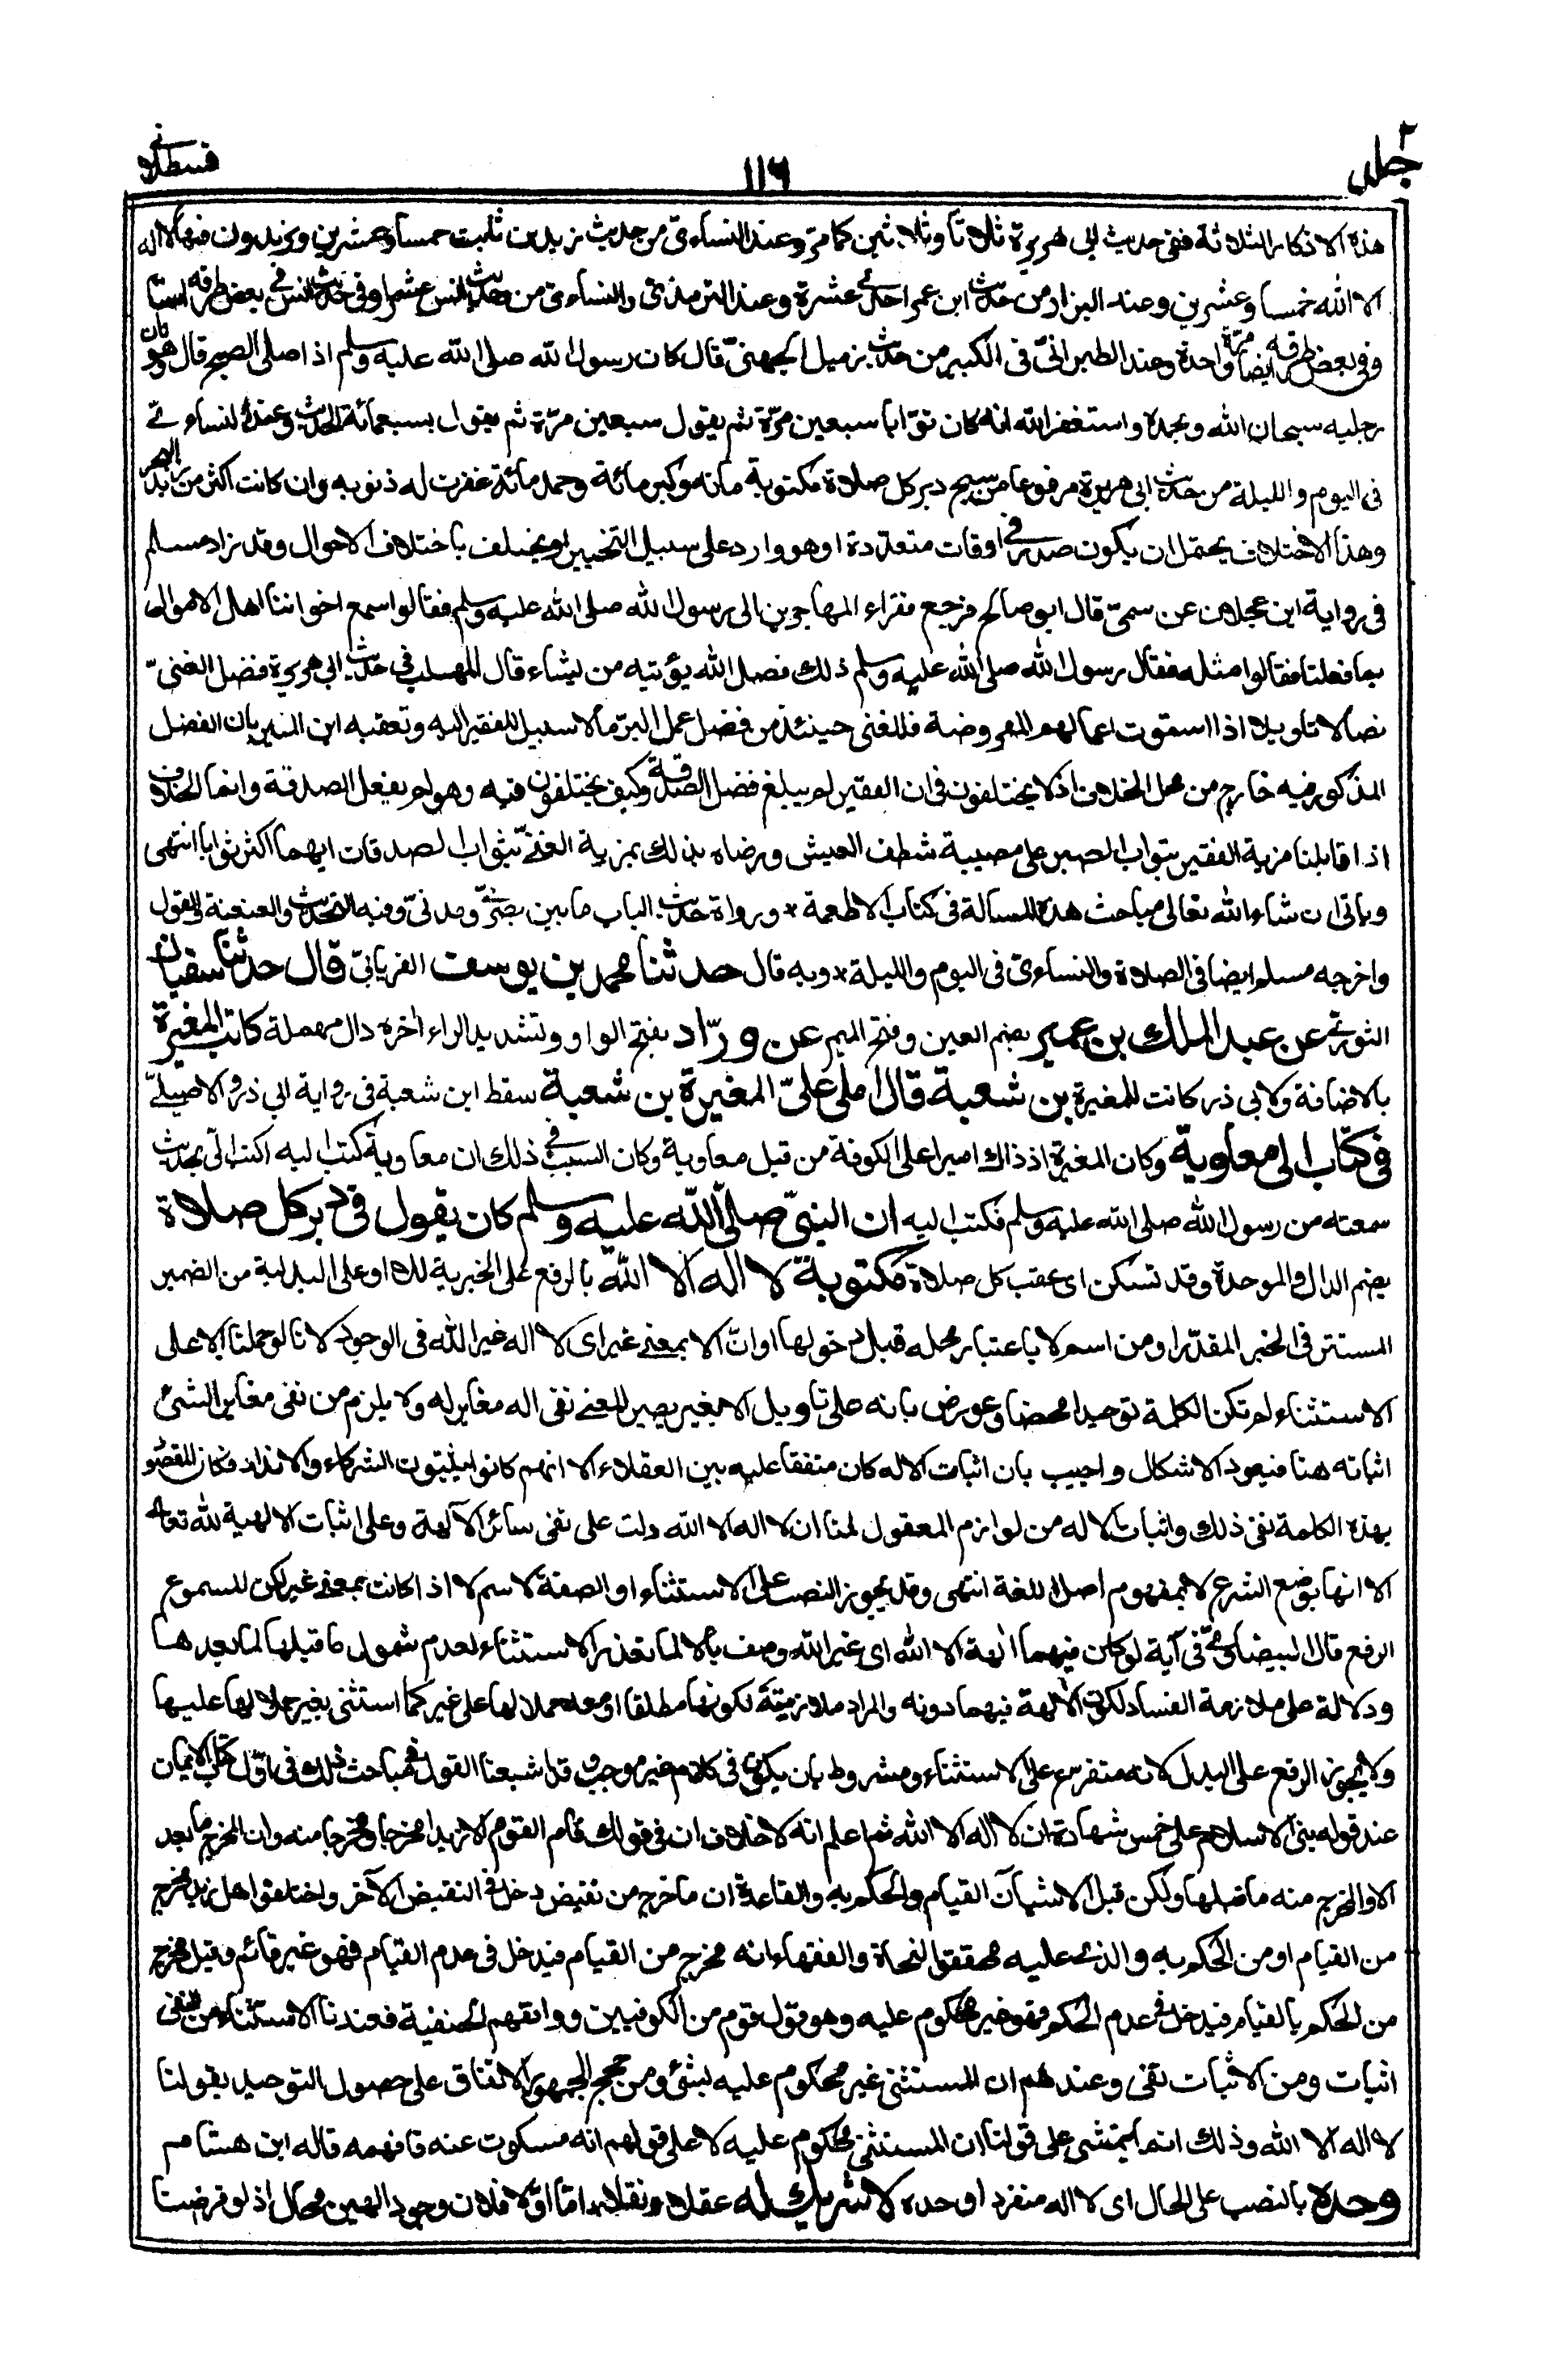 جلد ٢
١١٦
قسطلاني
هذه الاذكار الثلاثة ففى حديث ابى هريرة ثلاثا وثلاثين كما مرّ وعند النساءىّ من حديث زيد بن ثابت خمسا وعشرين ويزيدون فيها لا اله
الا الله خمسا وعشرين وعند البزار من حديث ابن عمر احدى عشرة وعند الترمذىّ والنساءىّ من حديث انس عشرا وفى حديث انس فى بعض طرقه ستا
وفى بعض طرقه ايضا مرّة واحدة وعند الطبرانىّ فى الكبير من حديث زميل الجهنىّ قال كان رسول الله صلى الله عليه وسلم اذا صلى الصبح قال وهو ثان
رجليه سبحان الله وبحمده واستغفر الله انه كان توّابا سبعين مرّة ثم يقول سبعين مرّة ثم يقول بسبعمائة الحديث وعند النساءىّ
فى اليوم والليلة من حديث ابى هريرة مرفوعا من سبح دبر كل صلاة مكتوبة مائة وكبر مائة وحمد مائة غفرت له ذنوبه وان كانت اكثر من زبد البحر
وهذا الاختلاف يحتمل ان يكون صدر فى اوقات متعدّدة او هو وارد على سبيل التخيير او يختلف باختلاف الاحوال وقد زاد مسلم
فى رواية ابن عجلان عن سمىّ قال ابو صالح فرجع فقراء المهاجرين الى رسول الله صلى الله عليه وسلم فقالوا سمع اخواننا اهل الاموال
بما فعلنا فقالوا مثله فقال رسول الله صلى الله عليه وسلم ذلك فضل الله يؤتيه من يشاء قال المهلب فى حديث ابى هريرة فضل الغنىّ
نصا لا تاويلا اذا استوت اعمالهم المفروضة فللغنى حينئذ من فضل عمل البرّ ما لا سبيل للفقير اليه وتعقبه ابن المنير بان الفضل
المذكور فيه خارج من محل الخلاف اذ لا يختلفون فى ان الفقير لم يبلغ فضل الصدقة وكيف يختلفون فيه وهو لم يفعل الصدقة وانما الخلاف
اذا قابلنا مزية الفقير بثواب الصبر على مصيبة شظف العيش ورضاه بذلك بمزية الغنىّ بثواب الصدقات ايهما اكثر ثوابا انتهى
وياتى ان شاء الله تعالى مباحث هذه المسالة فى كتاب الاطعمة * ورواة حديث الباب ما بين بصرىّ ومدنىّ وفيه التحديث والعنعنة والقول
واخرجه مسلم ايضا فى الصلاة والنساءىّ فى اليوم والليلة * وبه قال حدثنا محمد بن يوسف الفريابىّ قال حدثنا سفيان
الثورىّ عن عبد الملك بن عمير بضم العين وفتح الميم عن ورّاد بفتح الواو وتشديد الراء اخره دال مهملة كاتب المغيرة
بالاضافة ولابى ذر كاتب للمغيرة بن شعبة قال املى علىّ المغيرة بن شعبة سقط ابن شعبة فى رواية ابى ذر والاصيلىّ
فى كتاب الى معاوية وكان المغيرة اذ ذاك اميرا على الكوفة من قبل معاوية وكان السبب فى ذلك ان معاوية كتب اليه اكتب الىّ بحديث
سمعته من رسول الله صلى الله عليه وسلم فكتب اليه ان النبىّ صلى الله عليه وسلم كان يقول فى دبر كل صلاة
بضم الدال والموحدة وقد تسكن اى عقب كل صلاة مكتوبة لا اله الا الله بالرفع على الخبرية للا او على البدلية من الضمير
المستتر فى الخبر المقدّر او من اسم لا باعتبار محله قبل دخولها او انّ الا بمعنى غير اى لا اله غير الله فى الوجود لانا لو حملنا الا على
الاستثناء لم تكن الكلمة توحيدا محضا وعورض بانه على تاويل الا بغير يصير المعنى نفى اله مغاير له ولا يلزم من نفى مغاير الشئ
اثباته هنا فيعود الاشكال واجيب بان اثبات الاله كان متفقا عليه بين العقلاء الا انهم كانوا يثبتون الشركاء والانداد فكان المقصود
بهذه الكلمة نفى ذلك واثبات الاله من لوازم المعقول لمنا ان لا اله الا الله دلت على نفى سائر الآلهة وعلى اثبات الالهية لله تعالى
الا انها بوضع الشرع لا بمفهوم اصل اللغة انتهى وقد يجوز النصب على الاستثناء او الصفة لاسم لا اذا كانت بمعنى غير لكن المسموع
الرفع قال البيضاوىّ فى آية لو كان فيهما الهة الا الله اى غير الله وصف بالا لما تعذر الاستثناء لعدم شمول ما قبلها لما بعدها
ودلالة على ملازمة الفساد لكون الآلهة فيهما دونه والمراد ملازمته لكونها مطلقا او معه حملا لها على غير كما استثنى بغير حملا لها عليها
ولا يجوز الرفع على البدل لانه متفرع على الاستثناء ومشروط بان يكون فى كلام غير موجب وقد اشبعنا القول فى مباحث ذلك فى اوّل كتاب الايمان
عند قوله بنى الاسلام على خمس شهادة ان لا اله الا الله ثم اعلم انه لا خلاف ان فى قولك قام القوم الا زيدا مخرجا ومخرجا منه وان المخرج ما بعد
الا والمخرج منه ما قبلها ولكن قبل الا شيآن القيام والحكم به والقاعدة ان ما خرج من نقيض دخل فى النقيض الآخر واختلفوا هل زيد مخرج
من القيام او من الحكم به والذى عليه محققوا النحاة والفقهاء انه مخرج من القيام فيدخل فى عدم القيام فهو غير قائم وقيل مخرج
من الحكم بالقيام فيدخل فى عدم الحكم فهو غير محكوم عليه وهو قول قوم من الكوفيين ووافقهم الحنفية فعندنا الاستثناء من النفى
اثبات ومن الاثبات نفى وعندهم ان المستثنى غير محكوم عليه بشئ ومن حجج الجمهور الاتفاق على حصول التوحيد بقولنا
لا اله الا الله وذلك انما يتمشى على قولنا ان المستثنى محكوم عليه لا على قولهم انه مسكوت عنه فافهمه قاله ابن هشام
وحده بالنصب على الحال اى لا اله منفرد او حده لا شريك له عقلا ونقلا اما اوّلا فلان وجود الهين محال اذ لو فرضنا